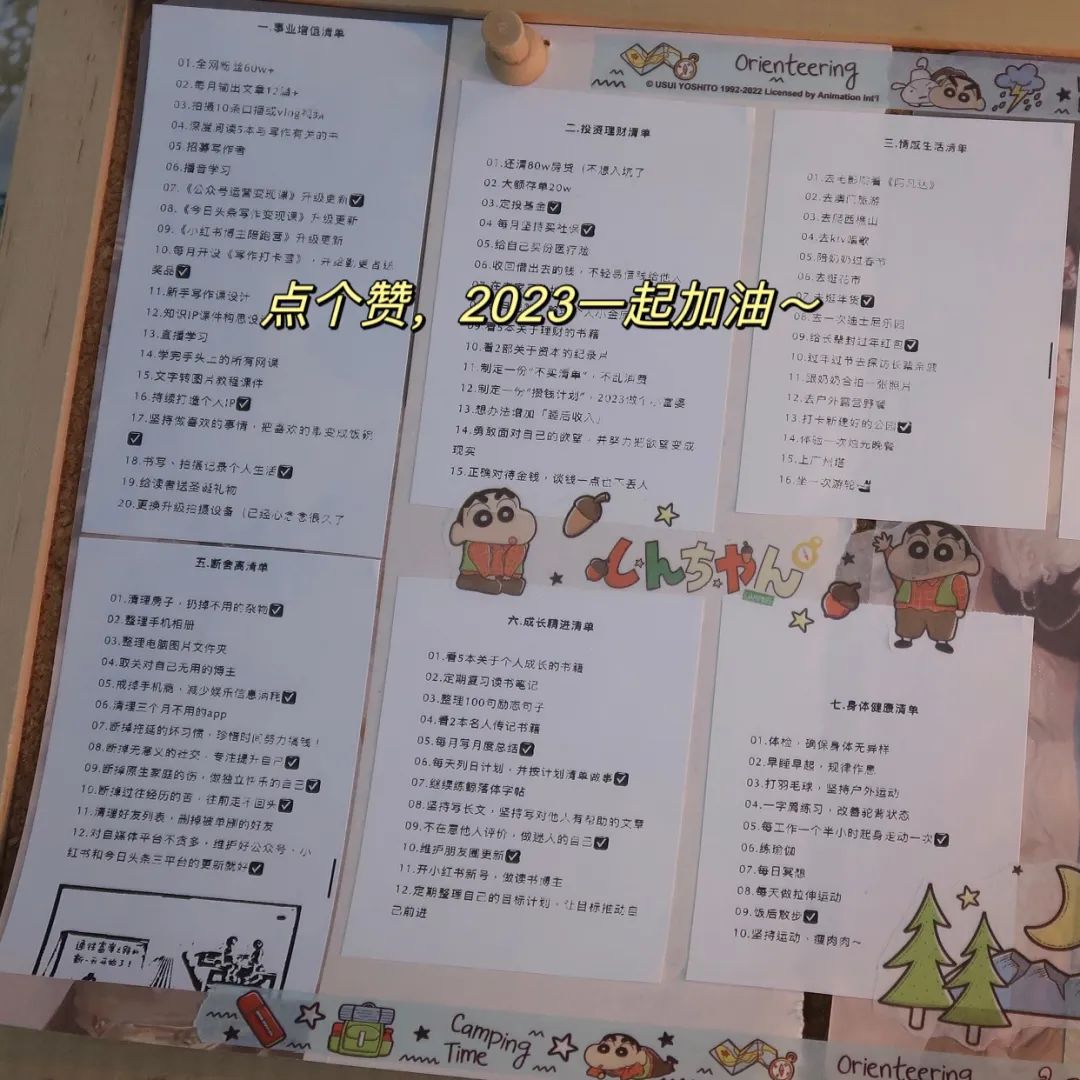 一.事业增值清单
01.全网粉丝60w+
02.每月输出文章12篇+
03.拍摄10条口播或vlog视频
04.深度阅读5本与写作有关的书
05.招募写作者
06.播音学习
07.《公众号运营变现课》升级更新
08.《今日头条写作变现课》升级更新
09.《小红书博主陪跑营》升级更新
10.每月开设《写作打卡营》，并给勤更者送
奖品
11.新手写作课设计
12.知识IP课件构思设
13.直播学习
14.学完手头上的所有网课
15.文字转图片教程课件
16.持续打造个人IP
17.坚持做喜欢的事情，把喜欢的事变成饭碗
18.书写、拍摄记录个人生活
19.给读者送圣诞礼物
20.更换升级拍摄设备（已经心念念很久了
Orienteering
© USUI YOSHITO 1992-2022 Licensed by Animation Int'l
二.投资理财清单
01.还清80w房贷（不想入坑了
02.大额存单20w
03.定投基金
04.每月坚持买社保
05.给自己买份医疗险
06.收回借出去的钱，不轻易借钱给他人
点个赞，2023一起加油～
09.看5本关于理财的书籍
10.看2部关于资本的纪录片
11.制定一份“不买清单”，不乱消费
12.制定一份“攒钱计划”，2023做个小富婆
13.想办法增加「睡后收入」
14.勇敢面对自己的欲望，并努力把欲望变成
现实
15.正确对待金钱，谈钱一点也不丢人
三.情感生活清单
01.去电影院看《阿凡达》
02.去澳门旅游
03.去爬西樵山
04.去ktv唱歌
05.陪奶奶过春节
06.去逛花市
07.去逛年货
08.去一次迪士尼乐园
09.给长辈封过年红包
10.过年过节去探访长辈亲戚
11.跟奶奶合拍一张照片
12.去户外露营野餐
13.打卡新建好的公园
14.体验一次烛光晚餐
15.上广州塔
16.坐一次游轮
しんちゃん
五.断舍离清单
01.清理房子，扔掉不用的杂物
02.整理手机相册
03.整理电脑图片文件夹
04.取关对自己无用的博主
05.戒掉手机瘾，减少娱乐信息消耗
06.清理三个月不用的app
07.断掉拖延的坏习惯，珍惜时间努力搞钱！
08.断掉无意义的社交，专注提升自己
09.断掉原生家庭的伤，做独立快乐的自己
10.断掉过往经历的苦，往前走不回头
11.清理好友列表，删掉被单删的好友
12.对自媒体平台不贪多，维护好公众号、小
红书和今日头条三平台的更新就好
六.成长精进清单
01.看5本关于个人成长的书籍
02.定期复习读书笔记
03.整理100句励志句子
04.看2本名人传记书籍
05.每月写月度总结
06.每天列日计划，并按计划清单做事
07.继续练鲸落体字帖
08.坚持写长文，坚持写对他人有帮助的文章
09.不在意他人评价，做迷人的自己
10.维护朋友圈更新
11.开小红书新号，做读书博主
12.定期整理自己的目标计划，让目标推动自
己前进
七.身体健康清单
01.体检，确保身体无异样
02.早睡早起，规律作息
03.打羽毛球，坚持户外运动
04.一字肩练习，改善驼背状态
05.每工作一个半小时起身走动一次
06.练瑜伽
07.每日冥想
08.每天做拉伸运动
09.饭后散步
10.坚持运动，瘦肉肉～
Camping
Time
Orienteering